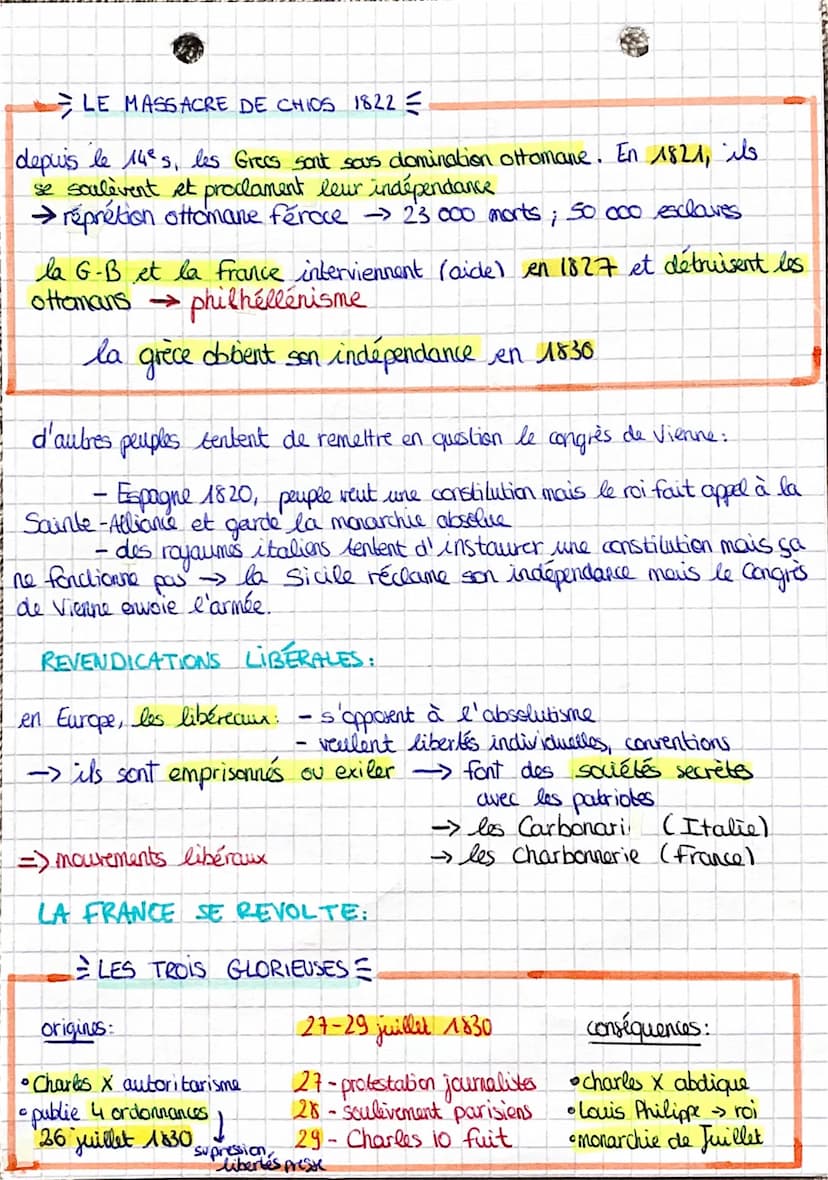 LE MASSACRE DE CHIOS 1822
depuis le 14e s, les Grecs sont sous domination ottomane. En 1821, ils
se soulèvent et proclament leur indépendance
→ réprétion ottomane féroce → 23 000 morts ; 50 000 esclaves
la G-B et la France interviennent (aide) en 1827 et détruisent les
ottomans → philhéllénisme
la grèce obtient son indépendance en 1830
d'autres peuples tentent de remettre en question le congrès de Vienne :
- Espagne 1820, peuple veut une constitution mais le roi fait appel à la
Sainte-Alliance et garde la monarchie absolue
- des royaumes italiens tentent d'instaurer une constitution mais ça
ne fonctionne pas → la Sicile réclame son indépendance mais le Congrès
de Vienne envoie l'armée.
REVENDICATIONS LIBÉRALES :
en Europe, les libéreaux : - s'opposent à l'absolutisme
- veulent libertés individuelles, conventions
→ ils sont emprisonnés ou exiler → font des sociétés secrètes
avec les patriotes
→ les Carbonari (Italie)
=> mouvements libéraux → les Charbonnerie (France)
LA FRANCE SE REVOLTE :
LES TROIS GLORIEUSES
origines :
• Charles X autoritarisme
• publie 4 ordonnances
26 juillet 1830
supression
libertés presse
27-29 juillet 1830
27 - protestation journalistes
28 - soulèvement parisiens
29 - Charles 10 fuit
conséquences :
• charles X abdique
• Louis Philippe → roi
• monarchie de Juillet